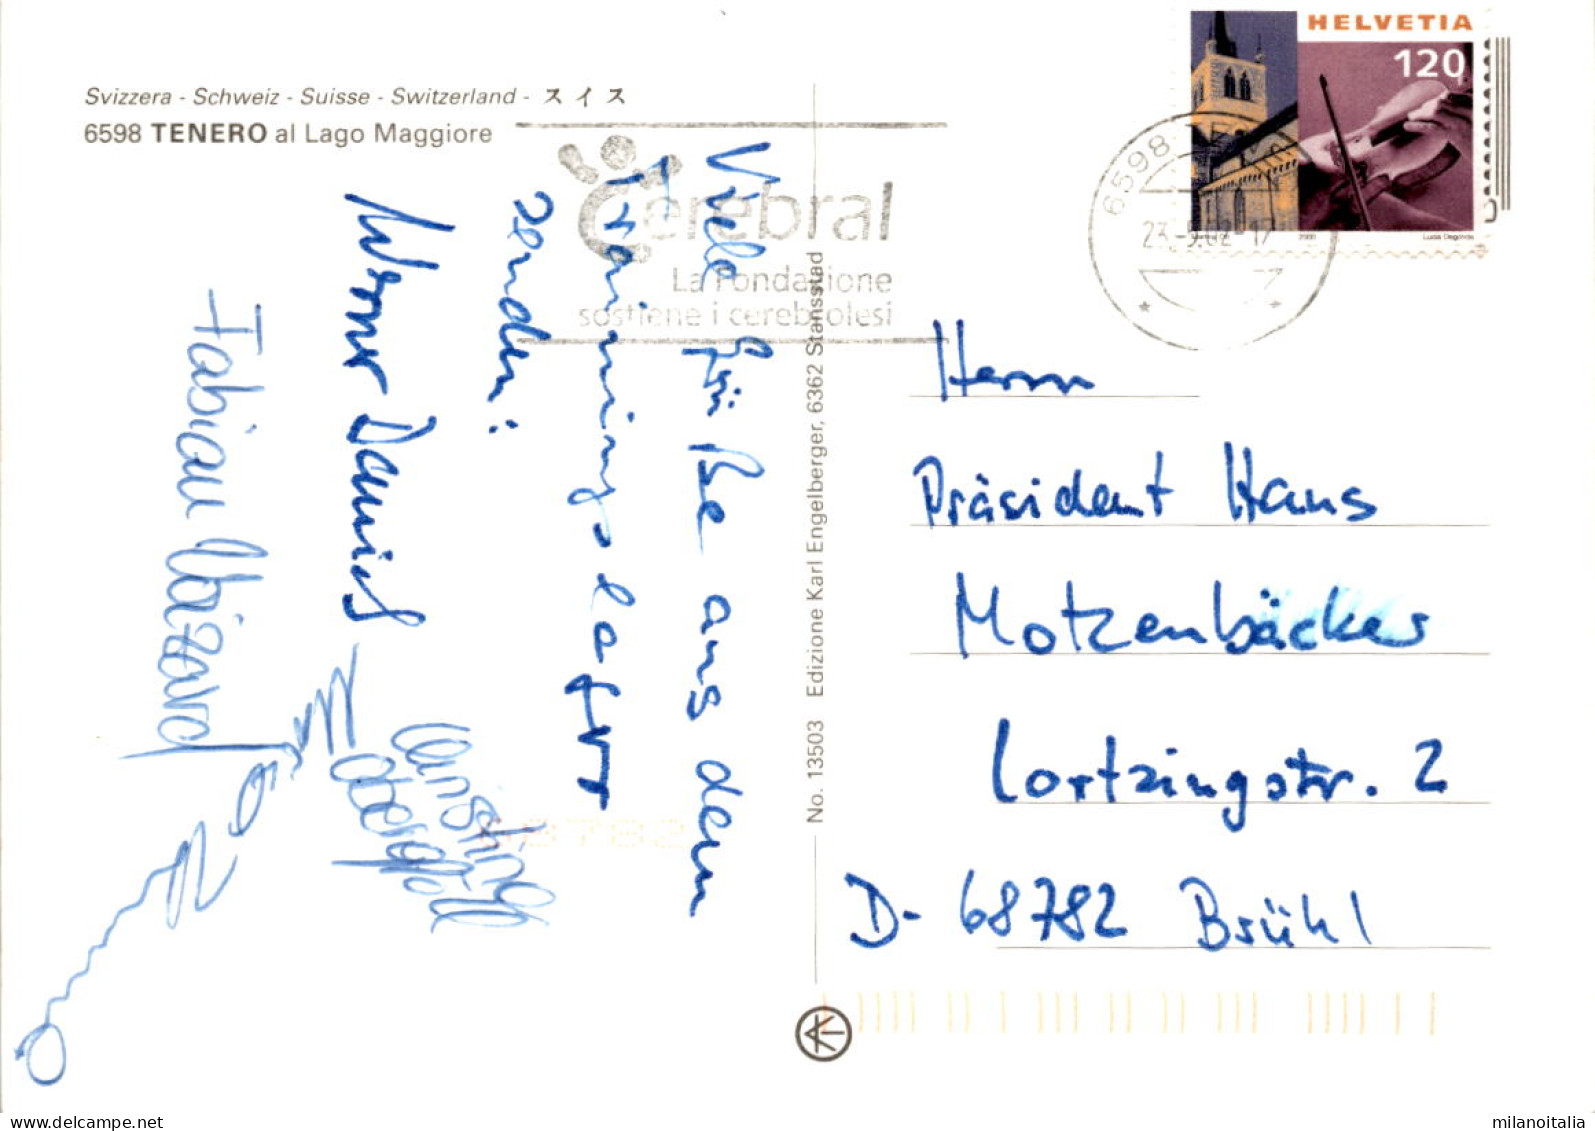 Svizzera - Schweiz - Suisse - Switzerland - スイス
6598 TENERO al Lago Maggiore
HELVETIA
120
2000
6598
23.-9.02-17
Cerebral
La Fondazione
sostiene i cerebrolesi
Viele Grüße aus dem
Trainingslager
senden:
Werner Daniel
Fabian
No. 13503 Edizione Karl Engelberger, 6362 Stansstad
Herrn
Präsident Hans
Motzenbäcker
Lortzingstr. 2
D-68782 Brühl
68782
milanoitalia